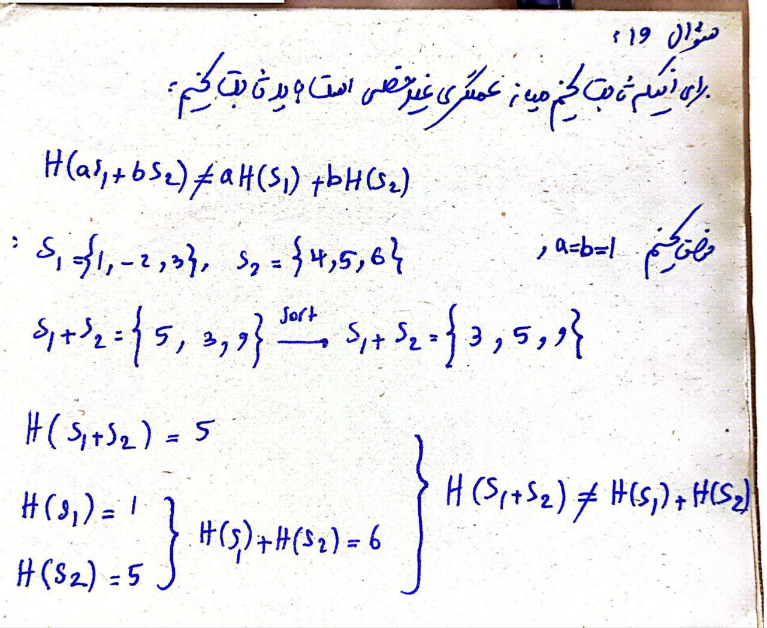 سؤال 19 :
برای اینکه ثابت کنیم میانه عملگری غیرخطی است باید ثابت کنیم :
H(as₁+bS₂) ≠ aH(S₁) + bH(S₂)
فرض کنیم a=b=1 , S₁={1, -2, 3}, S₂ = {4, 5, 6} :
S₁+S₂ = {5, 3, 9} sort → S₁+S₂ = {3, 5, 9}
H(S₁+S₂) = 5
H(S₁) = 1
H(S₂) = 5
H(S₁)+H(S₂) = 6
H(S₁+S₂) ≠ H(S₁)+H(S₂)